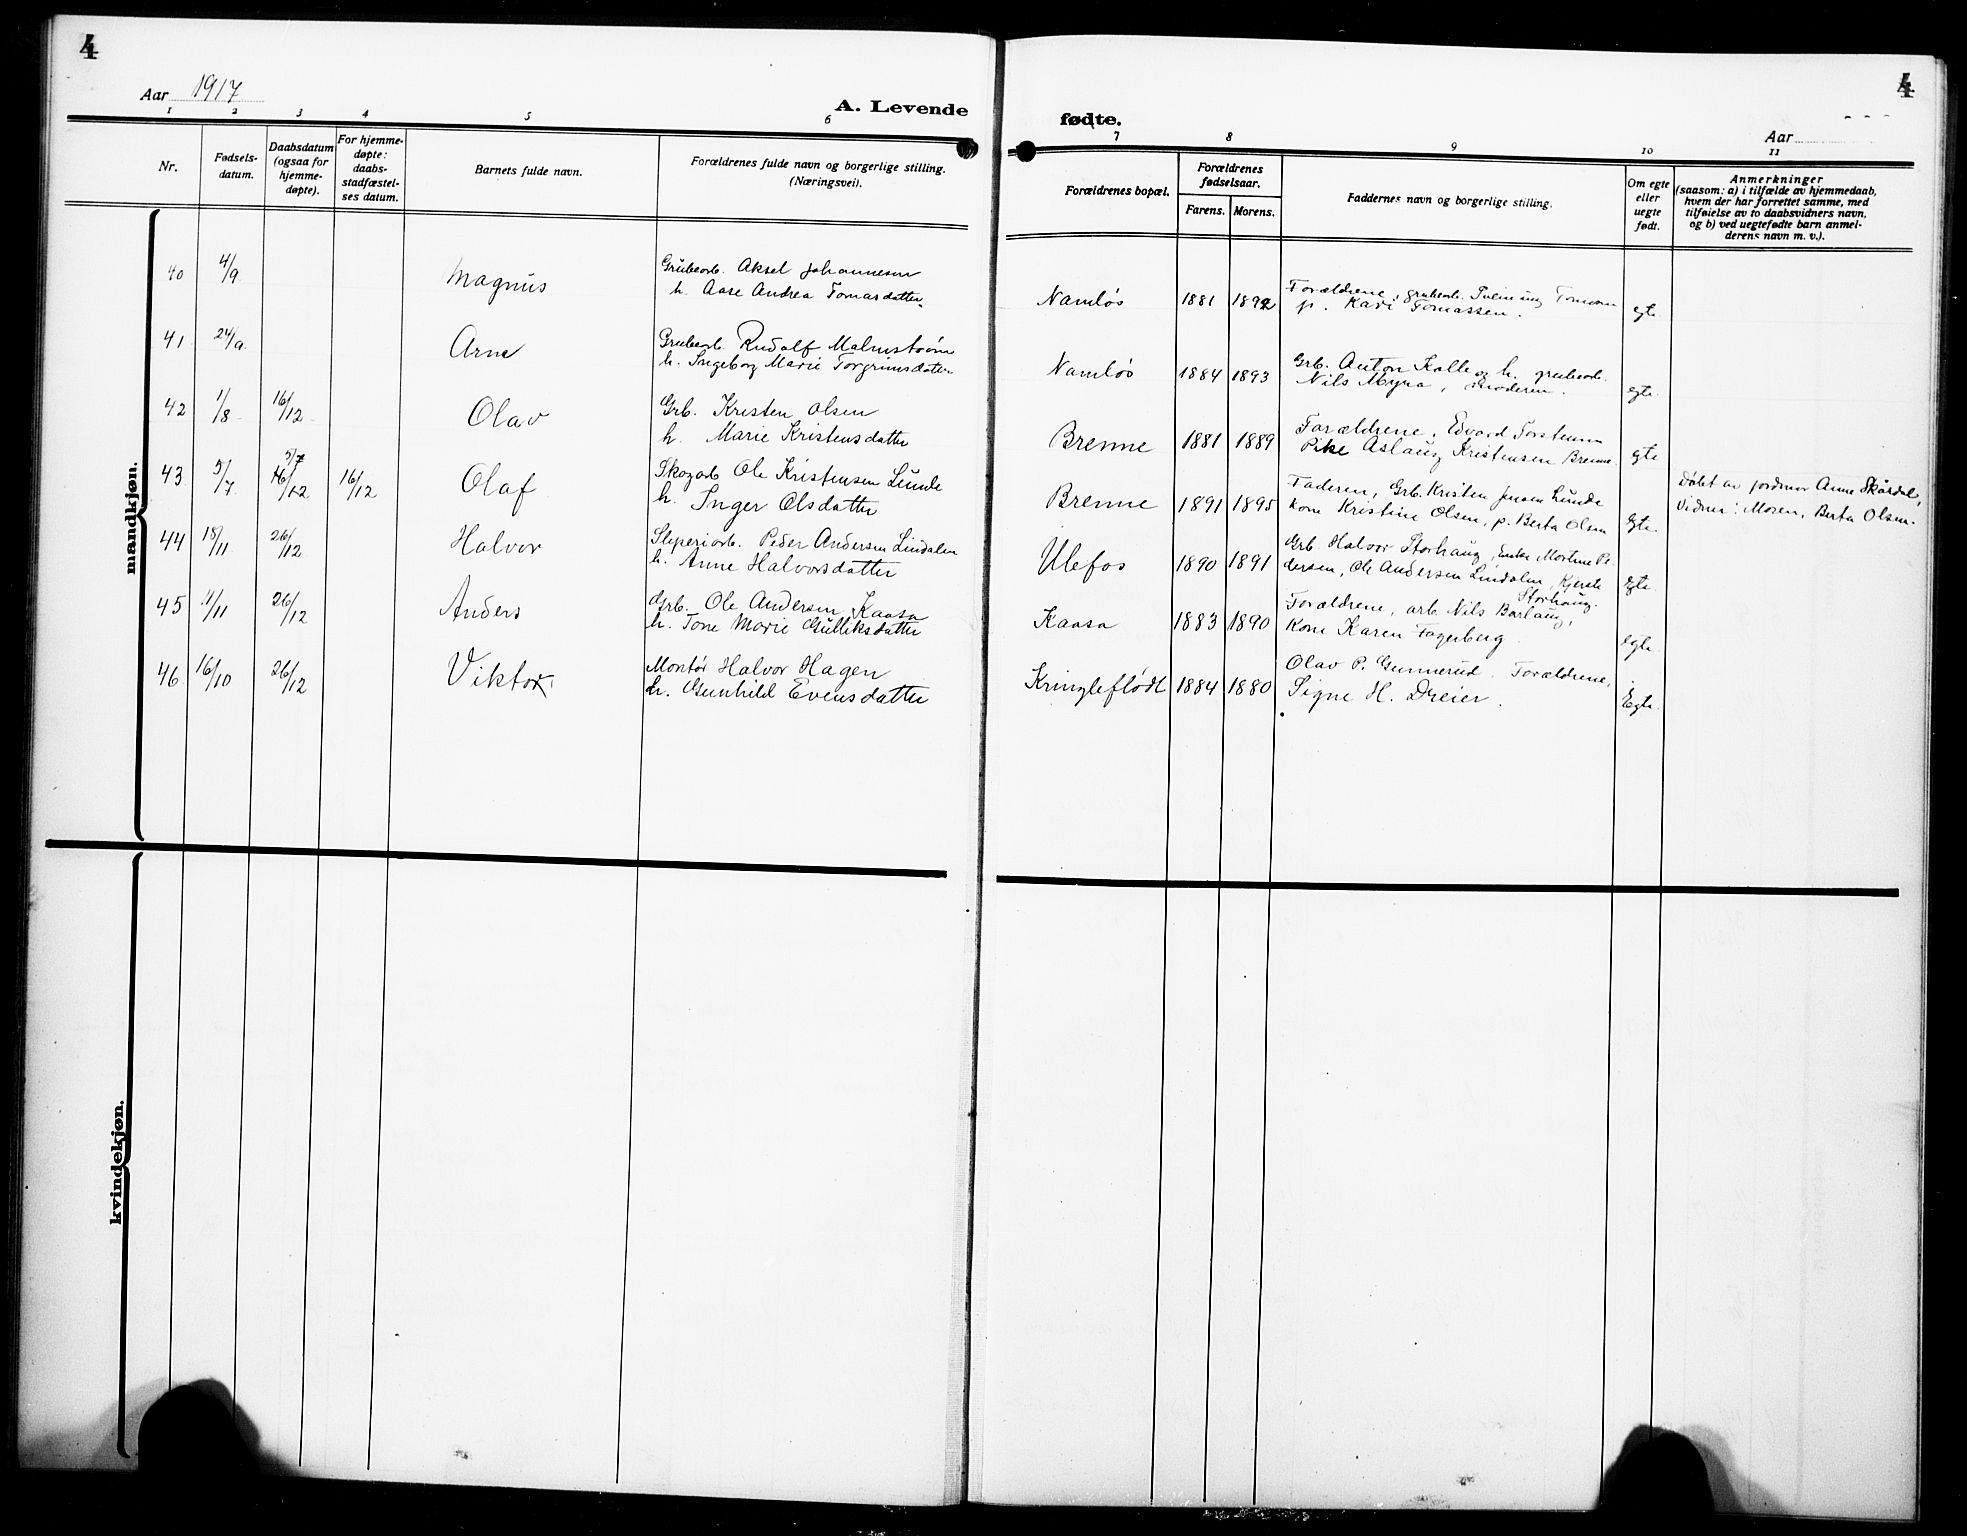 4
Aar 1917
A. Levende
1 2 3 4 5 6
Nr.
Fødsels-
datum.
Daabsdatum
(ogsaa for
hjemme-
døpte).
For hjemme-
døpte:
daabs-
stadfæstel-
ses datum.
Barnets fulde navn.
Forældrenes fulde navn og borgerlige stilling.
(Næringsvei).
mandkjøn.
40 4/9 Magnus Grubearb. Aksel Johannesen
h. Aase Andrea Tomasdatter
41 24/9 Arne Grubearb. Rudolf Malmstrøm
h. Ingeborg Marie Torgrimsdatter
42 1/8 16/12 Olav Grb. Kristen Olsen
h. Marie Kristensdatter
43 5/7 5/7 16/12 16/12 Olaf Skogarb Ole Kristensen Lunde
h. Inger Olsdatter
44 18/11 26/12 Halvor Sliperiarb. Peder Andersen Lindalen
h. Anne Halvorsdatter
45 11/11 26/12 Anders Grb. Ole Andersen Kaasa
h. Tone Marie Gulliksdatter
46 16/10 26/12 Viktor Montør Halvor Hagen
h. Gunhild Evensdatter
kvindekjøn.
4
fødte.
Aar
7 8 9 10 11
Forældrenes bopæl.
Forældrenes
fødselsaar.
Farens. Morens.
Faddernes navn og borgerlige stilling.
Om egte
eller
uegte
født.
Anmerkninger
(saasom: a) i tilfælde av hjemmedaab,
hvem der har forrettet samme, med
tilføielse av to daabsvidners navn,
og b) ved uegtefødte barn anmel-
derens navn m. v.).
Namløs 1881 1892 Forældrene, grubearb. Tomassen
p. Kari Tomassen. egte
Namløs 1884 1893 Grb. Anton Kalle og h. grubearb.
Nils Myra, moderen. egte.
Brenne 1881 1889 Forældrene, Edvard Torstensen
Pike Aslaug Kristensen Brenne. egte
Brenne 1891 1895 Faderen, Grb. Kristen Jensen Lunde
kone Kristine Olsen, p. Berta Olsen egte. Døbt av jordmor Anne Skårdal,
Vidner: Moren, Berta Olsen.
Ulefos 1890 1891 Grb. Halvor Storhaug, Enke Mortine Pe-
dersen, Ole Andersen Lindalen, Kjersti
Storhaug. egte.
Kaasa 1883 1890 Forældrene, arb. Nils Barlaug,
Kone Karen Fagerberg. egte.
Kringleflødt 1884 1880 Olav P. Gunnerud. Forældrene,
Signe H. Dreier. Egte.